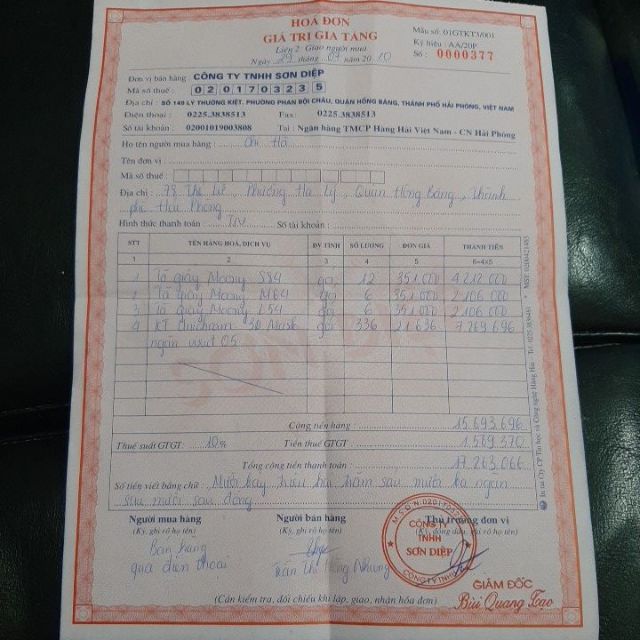 HOÁ ĐƠN
GIÁ TRỊ GIA TĂNG
Liên 2 Giao người mua
Ngày 29 tháng 07 năm 2010
Mẫu số: 01GTKT3/001
Ký hiệu: AA/20P
Số: 0000377
Đơn vị bán hàng: CÔNG TY TNHH SƠN DIỆP
Mã số thuế: 0201703235
Địa chỉ: SỐ 149 LÝ THƯỜNG KIỆT, PHƯỜNG PHAN BỘI CHÂU, QUẬN HỒNG BÀNG, THÀNH PHỐ HẢI PHÒNG, VIỆT NAM
Điện thoại: 0225.3838513 Fax: 0225.3838513
Số tài khoản: 02001019003808 Tại: Ngân hàng TMCP Hàng Hải Việt Nam - CN Hải Phòng
Họ tên người mua hàng: Chị Hà
Tên đơn vị
Mã số thuế:
Địa chỉ: 79 Thế Lữ, Phường Hạ Lý, Quận Hồng Bàng, Thành
phố Hải Phòng
Hình thức thanh toán: TM Số tài khoản:
STT TÊN HÀNG HOÁ, DỊCH VỤ ĐV TÍNH SỐ LƯỢNG ĐƠN GIÁ THÀNH TIỀN
1 2 3 4 5 6=4x5
1 Tã giấy Moony S84 gói 12 351.000 4.212.000
2 Tã giấy Moony M64 gói 6 351.000 2.106.000
3 Tã giấy Moony L54 gói 6 351.000 2.106.000
4 KT Unicharm 3D Mask gói 336 21.636 7.269.696
ngăn virut 05
Cộng tiền hàng: 15.693.696
Thuế suất GTGT: 10% Tiền thuế GTGT: 1.569.370
Tổng cộng tiền thanh toán: 17.263.066
Số tiền viết bằng chữ: Mười bảy triệu hai trăm sáu mươi ba ngàn
sáu mươi sáu đồng
Người mua hàng Người bán hàng Thủ trưởng đơn vị
(Ký, ghi rõ họ tên) (Ký, ghi rõ họ tên)
Bán hàng
qua điện thoại
CÔNG TY
TNHH
SƠN DIỆP
GIÁM ĐỐC
Bùi Quang Tạo
(Cần kiểm tra, đối chiếu khi lập, giao, nhận hóa đơn)